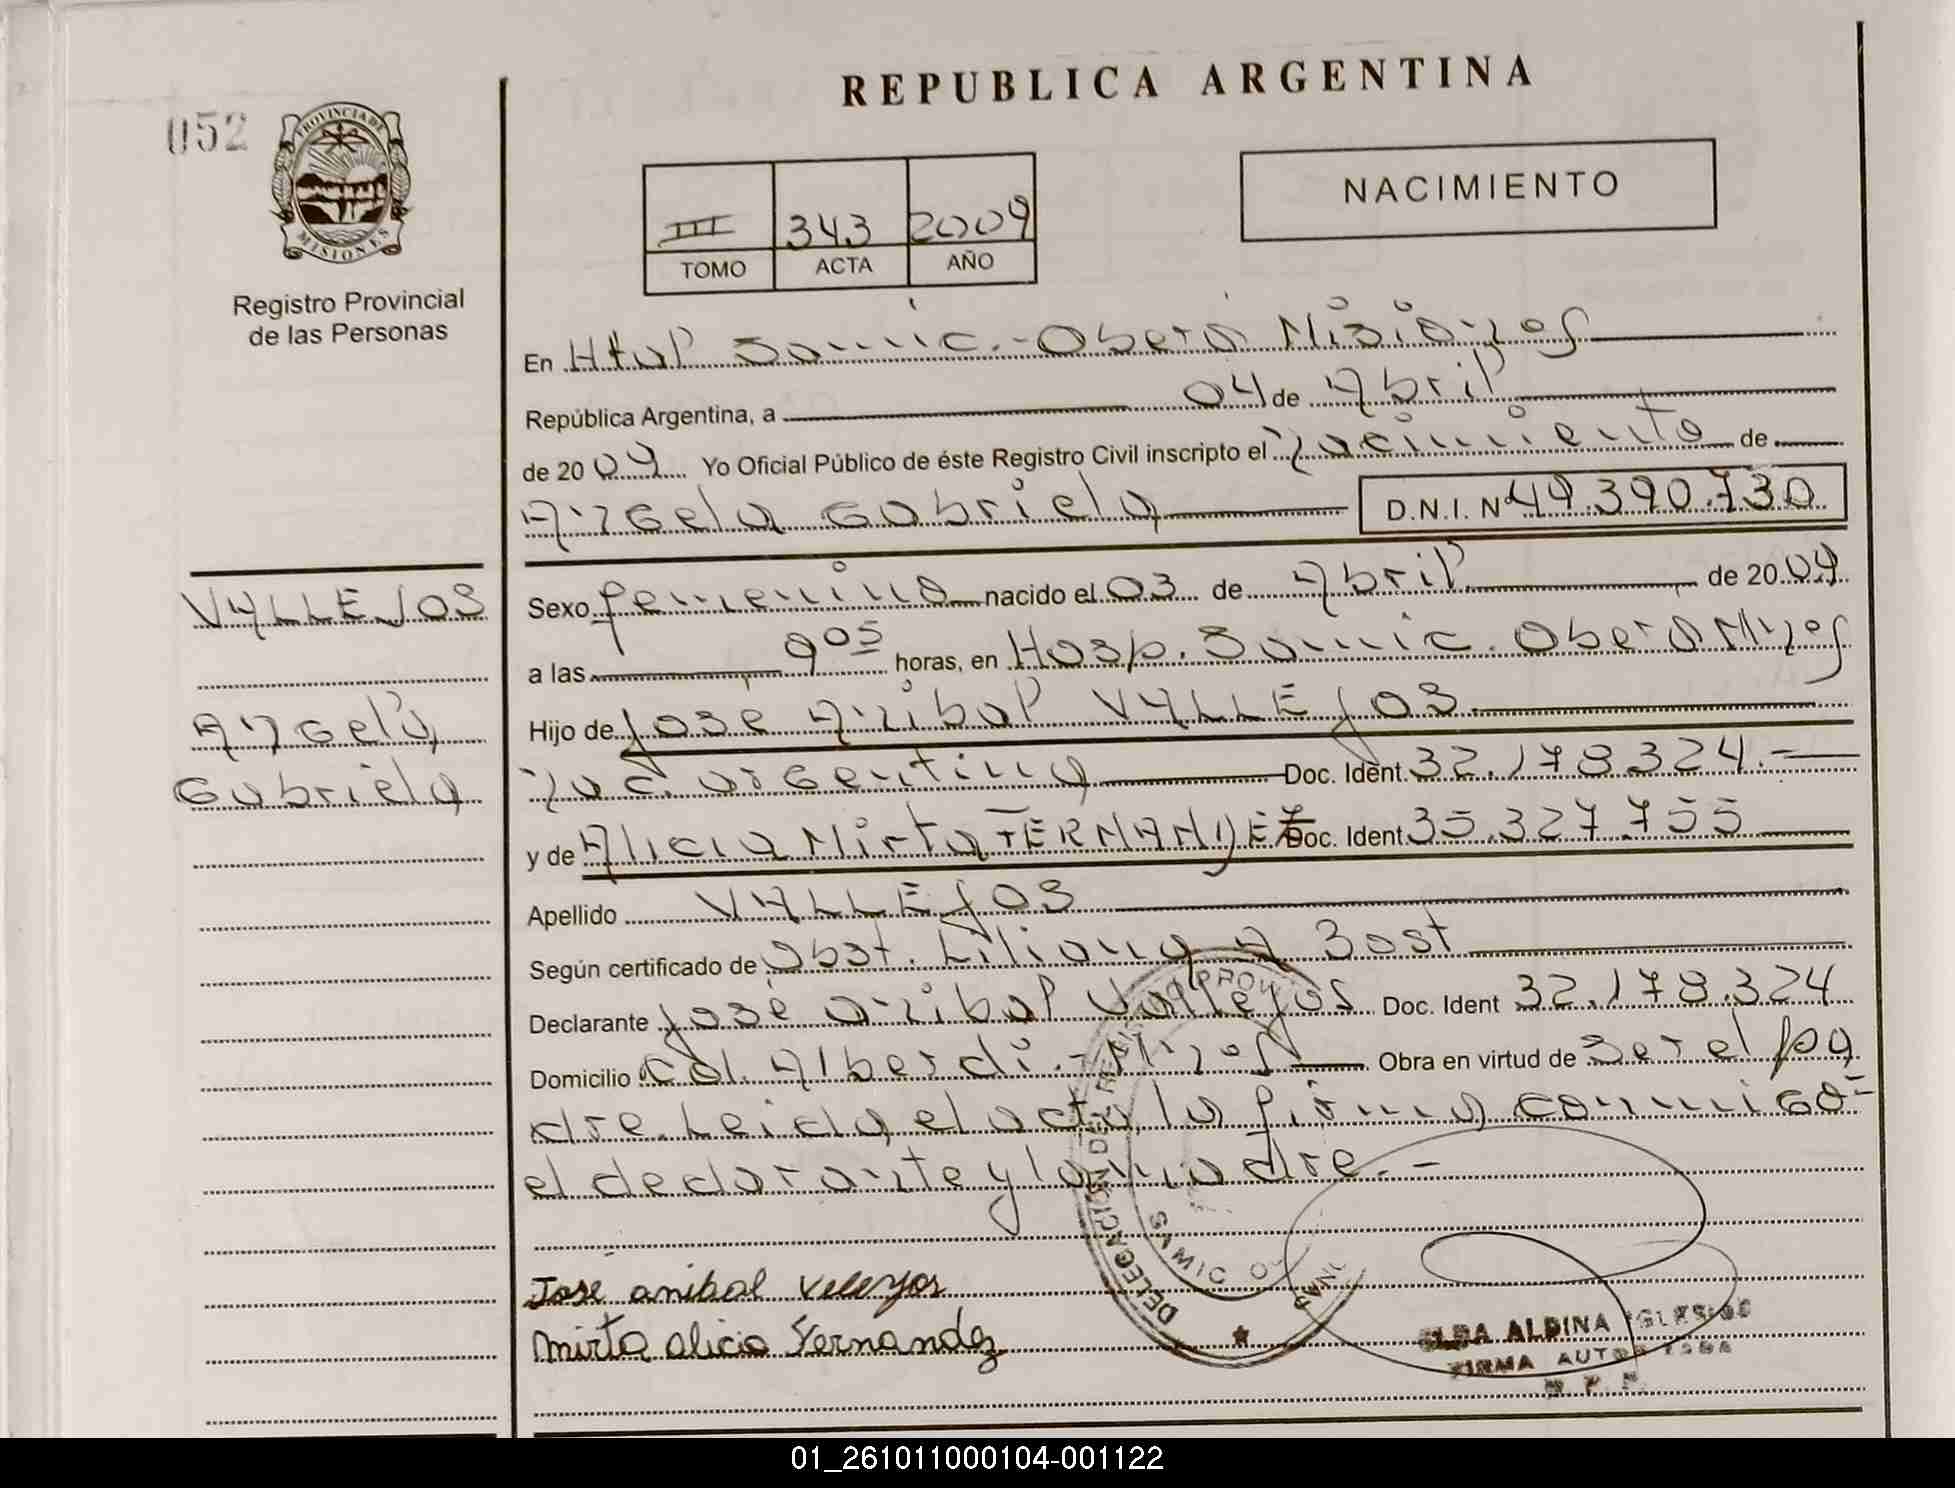 REPUBLICA ARGENTINA
052
PROVINCIA DE
MISIONES
Registro Provincial
de las Personas
NACIMIENTO
III 343 2009
TOMO ACTA AÑO
En Htal Samic.-Oberá Misiones
República Argentina, a 04 de Abril
de 2009 Yo Oficial Público de éste Registro Civil inscripto el nacimiento de
Angela Gabriela D.N.I. Nº 49.390.730
VALLEJOS
Angela
Gabriela
Sexo femenino nacido el 03 de Abril de 2009
a las 9 05 horas, en Hosp. Samic. Oberá Mnes
Hijo de José Anibal VALLEJOS
nac. argentina Doc. Ident. 32.178.324.-
y de Alicia Mirta FERNANDEZ Doc. Ident. 35.327.755
Apellido VALLEJOS
Según certificado de Obst. Liliana A Bost
Declarante José anibal Vallejos Doc. Ident 32.178.324
Domicilio Col. Alberdi.-Mnes Obra en virtud de Ser el pa
dre. Leida el acta la firma conmigo
el declarante y la madre.-
José anibal Vallejos
mirta alicia Fernandez
DELEGACION DE REGIS PROV
SAMIC
ELBA ALDINA IGLESIAS
FIRMA AUTORIZADA
01_261011000104-001122